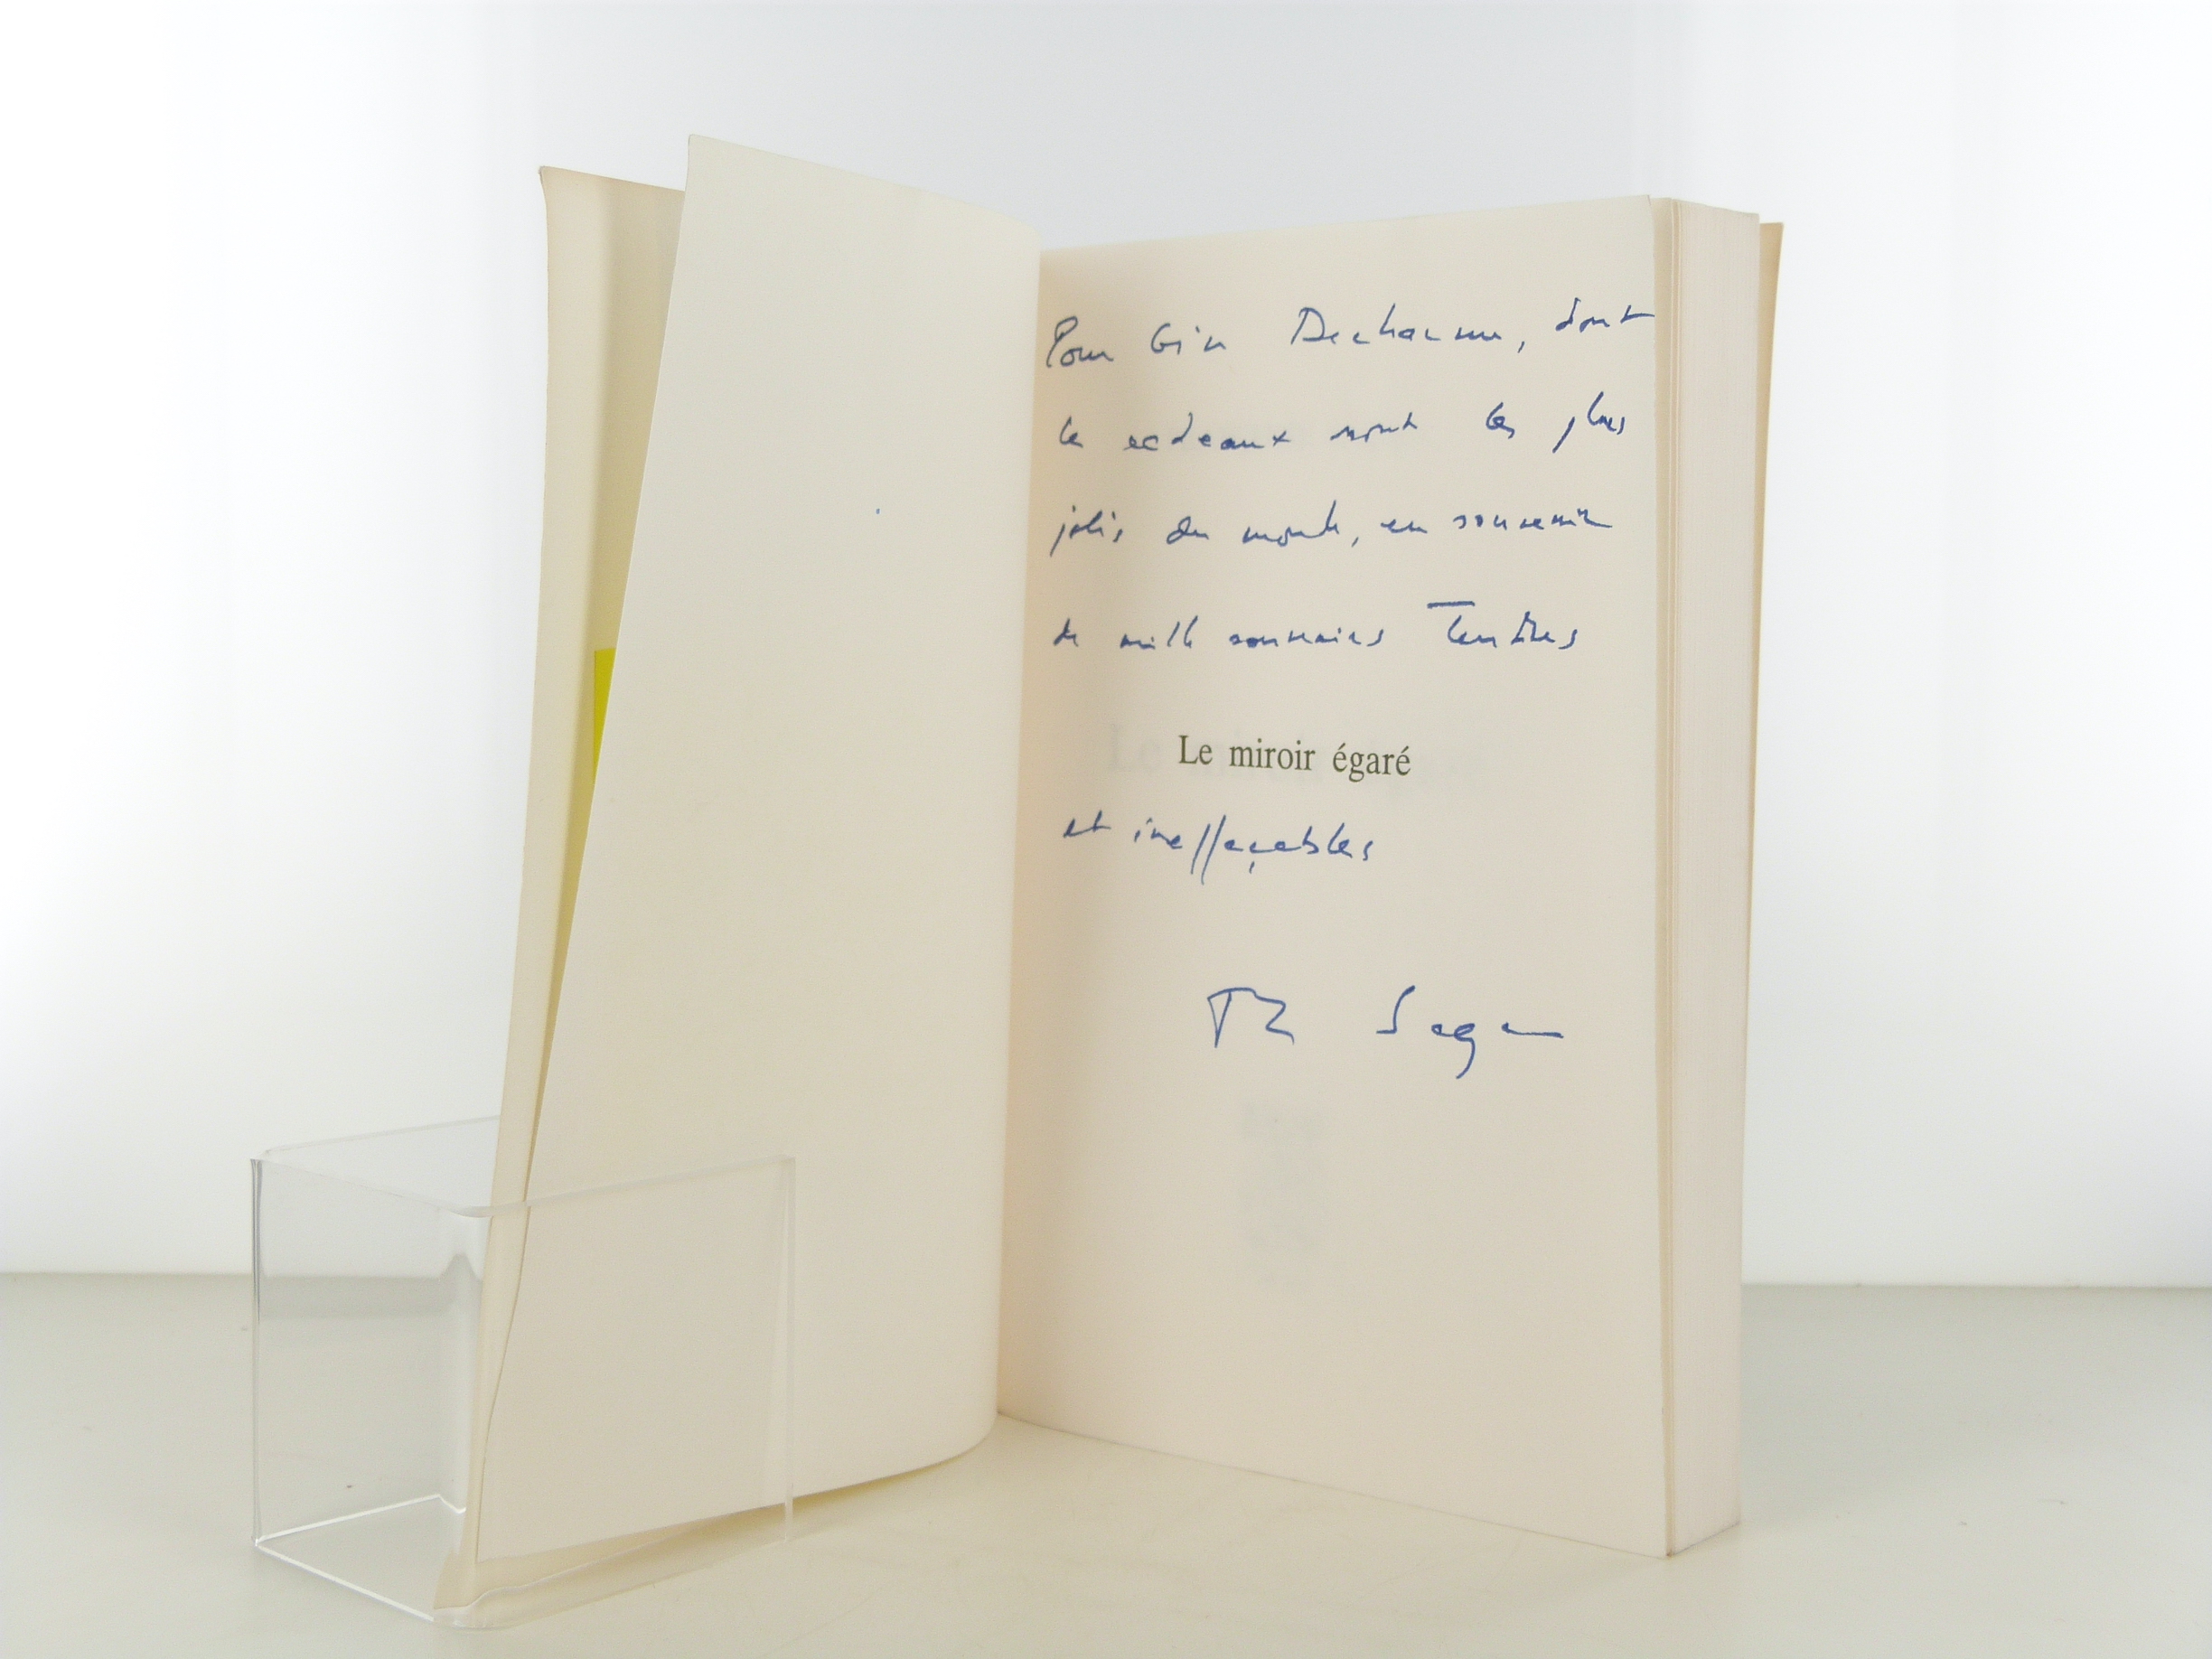 Pour Gin Decharme, dont
les cadeaux sont les plus
jolis du monde, en souvenir
de mille souvenirs Tendres
Le miroir égaré
et ineffaçables
Sagan